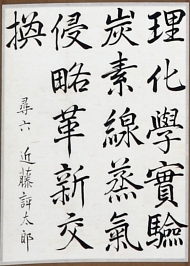 理化學實驗
炭素線蒸氣
侵略革新交
換
尋六 近藤詳太郎